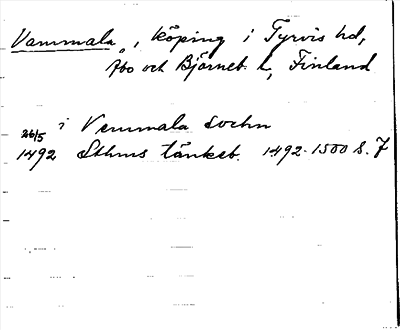 Vammala, köping i Tyrvis hd,
Åbo och Björneb. l., Finland
26/5 i Vemmala sochn
1492 Sthms tänkeb. 1492-1500 s. 7